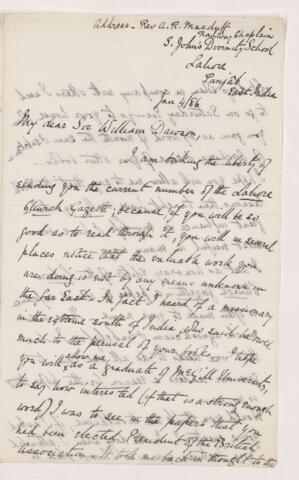 Address - Rev A. R. Macduff
Railway Chaplain
S. John's Divinity School
Lahore
Punjab
East India
Jan 4/86
My dear Sir William Dawson,
I am taking the liberty of
sending you the current number of the Lahore
Church Gazette; because, if you will be so
good as to read through it, you will in several
places notice that the valuable work you
are doing is not by any means unknown in
the far East. In fact I heard of a missionary
in the extreme south of India, who said he owed
much to the perusal of your books. I hope
you will allow me, as a graduate of McGill University,
to say how interested (if that is a strong enough
word) I was to see in the papers that you
had been elected President of the British
Association. It took me back in thought to the